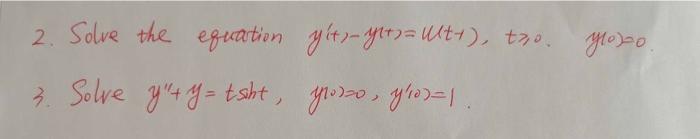 2. Solve the equation y'(t)-y(t)=u(t-1), t≥0. y(0)=0.
3. Solve y''+y=tsht, y(0)=0, y'(0)=1.